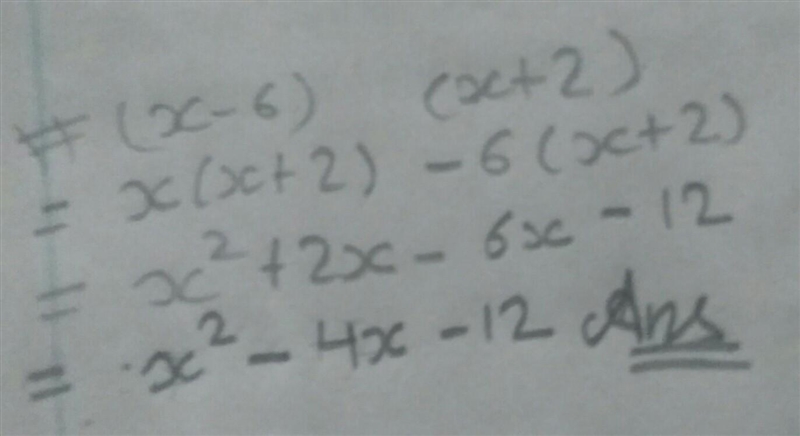 ≠ (x-6) (x+2)
= x(x+2) - 6(x+2)
= x² + 2x - 6x - 12
= x² - 4x - 12 Ans